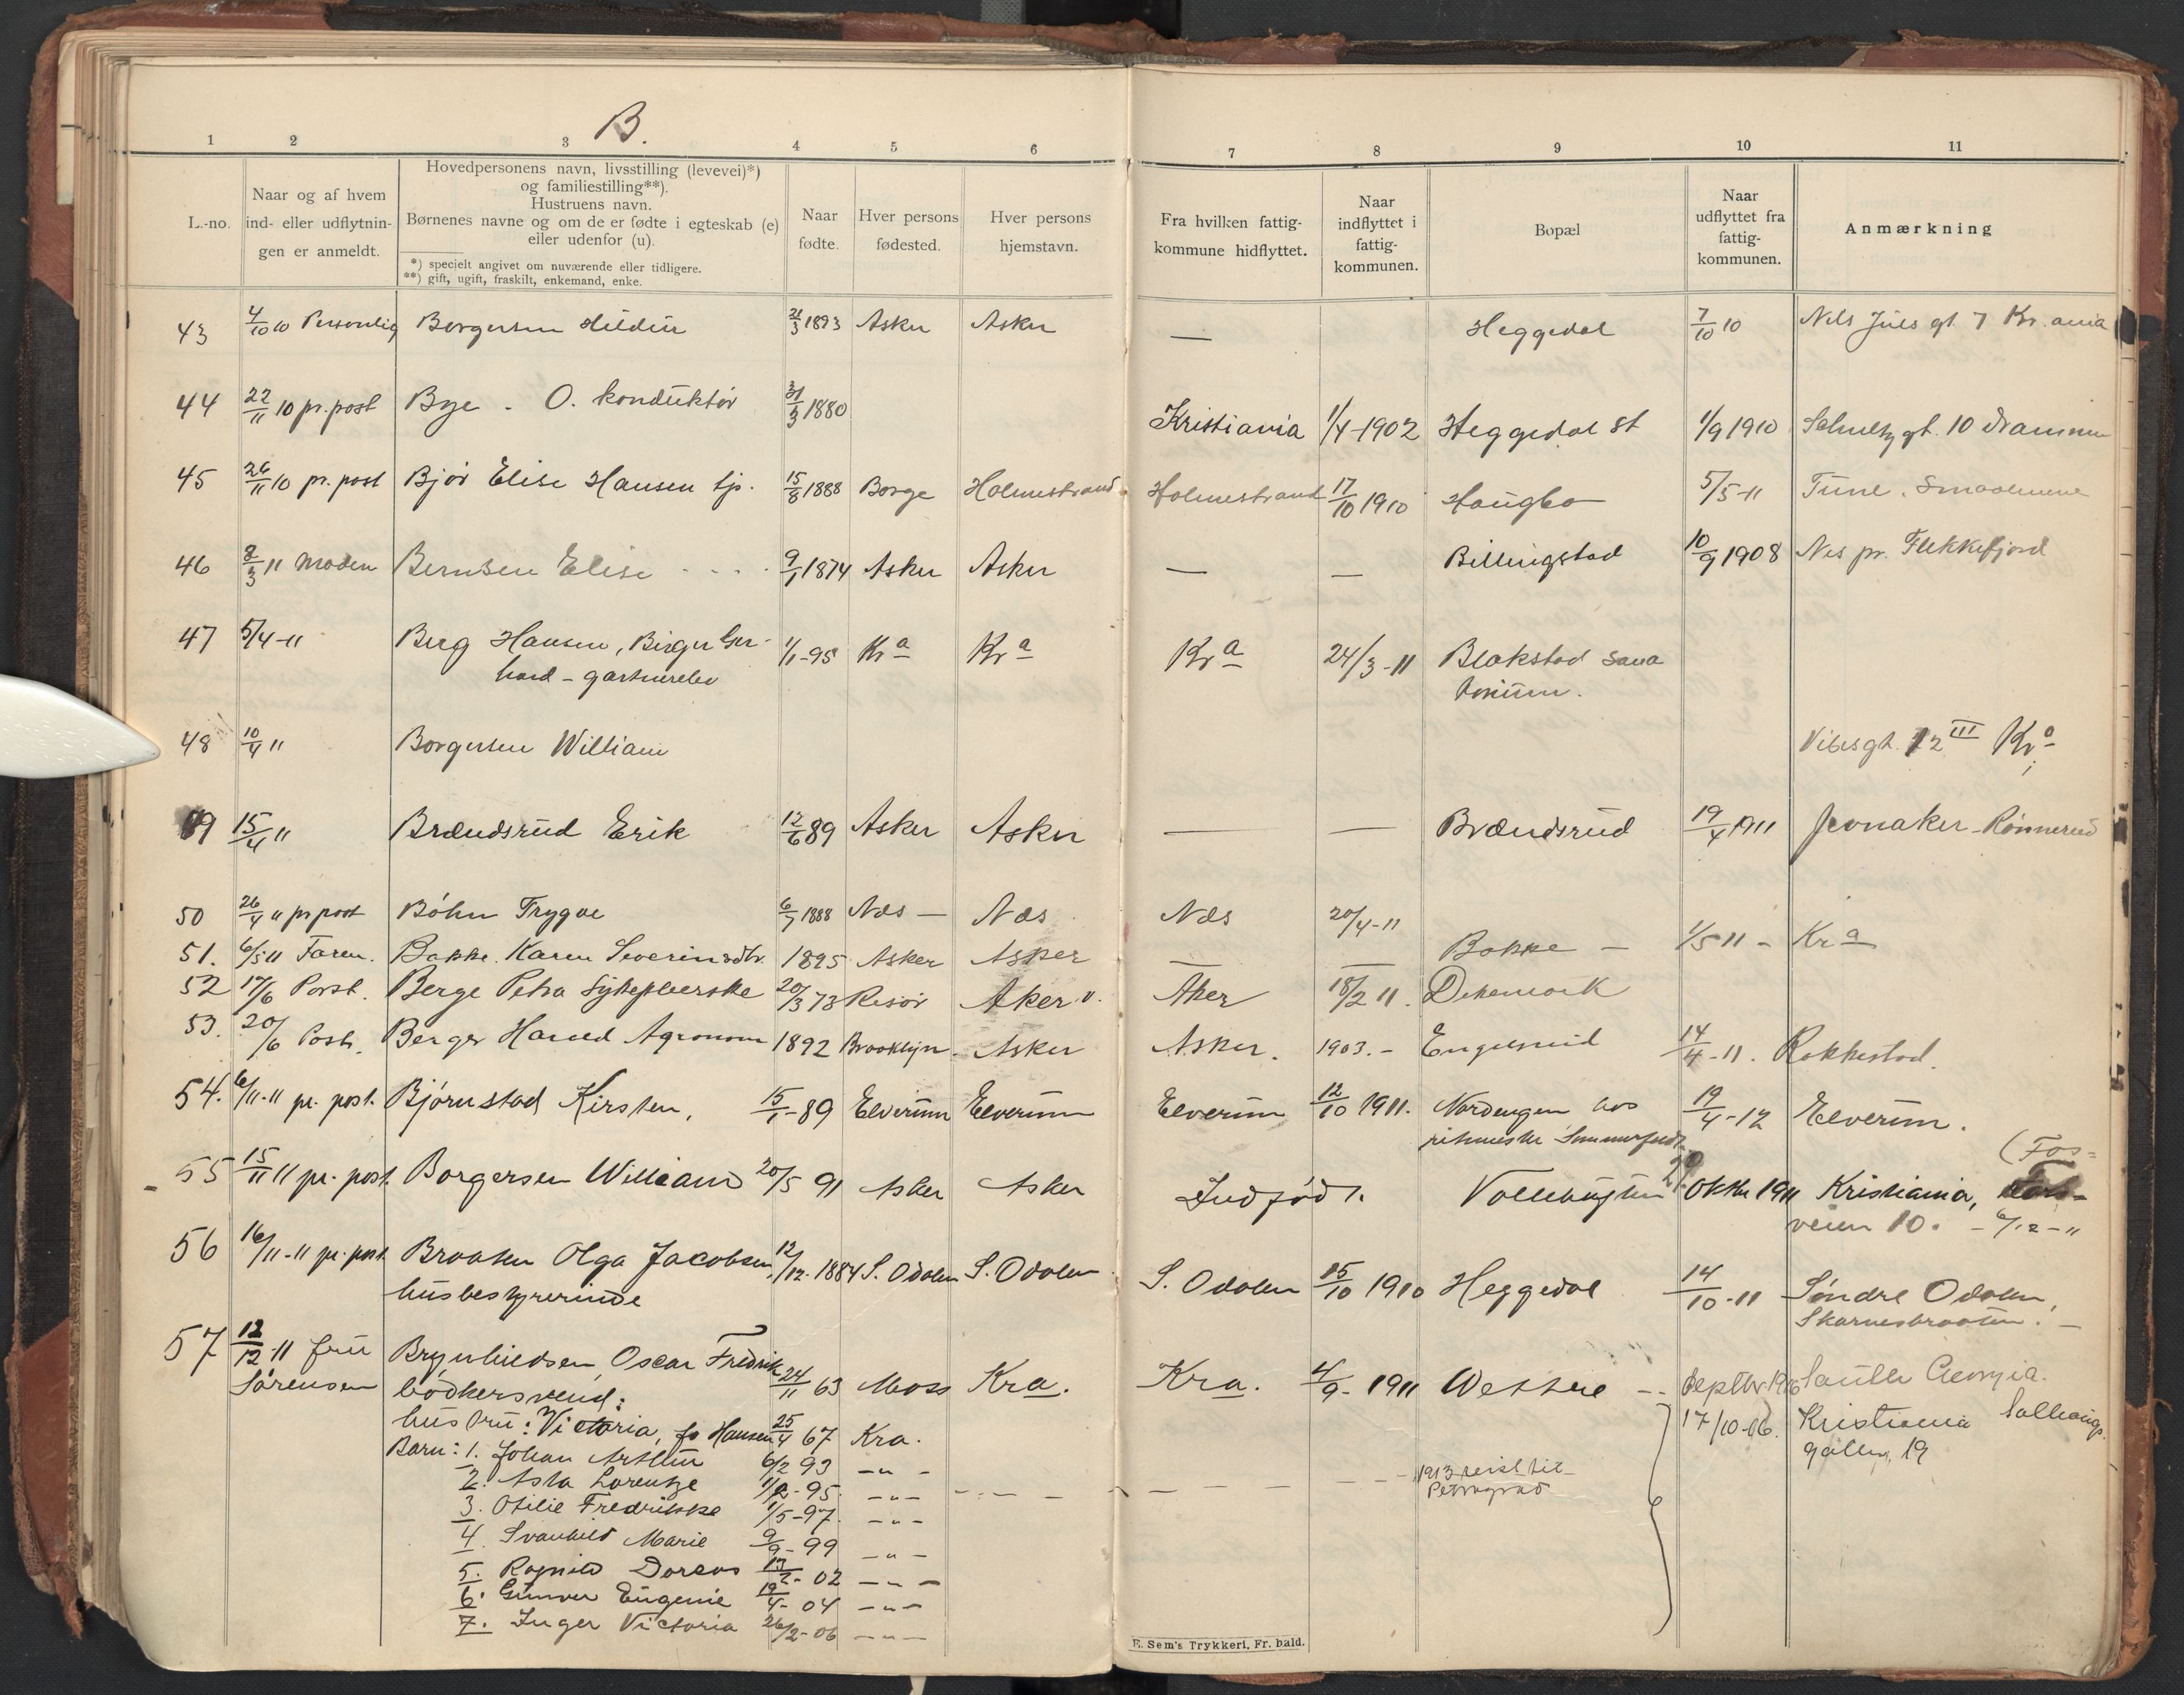 B.
1 2 3 4 5 6 7 8 9 10 11
L.-no.
Naar og af hvem
ind- eller udflytnin-
gen er anmeldt.
Hovedpersonens navn, livsstilling (levevei)*)
og familiestilling**).
Hustruens navn.
Børnenes navne og om de er fødte i egteskab (e)
eller udenfor (u).
*) specielt angivet om nuværende eller tidligere.
**) gift, ugift, fraskilt, enkemand, enke.
Naar
fødte.
Hver persons
fødested.
Hver persons
hjemstavn.
Fra hvilken fattig-
kommune hidflyttet.
Naar
indflyttet i
fattig-
kommunen.
Bopæl
Naar
udflyttet fra
fattig-
kommunen.
Anmærkning
43 4/10 10 Personlig Borgersen Hildur 21/3 1893 Asker Asker — Heggedal 7/10 10 Nils Juels gt 7 Kr.ania
44 22/11 10 pr. post Bye - O. konduktør 31/3 1880 Kristiania 1/4-1902 Heggedal St 1/9 1910 Schultz gt. 10 Drammen
45 26/11 10 pr. post Bjør Elise Hansen tj. 15/8 1888 Borge Holmestrand Holmestrand 17/10 1910 Haugbo 5/5-11 Tune. Smaalenene
46 8/3 11 Moden Bernsen Elise - - - 9/1 1874 Asker Asker — — Billingstad 10/9 1908 Nes pr. Flekkefjord
47 5/4-11 Berg Hansen, Birger Ger-
hard - gartnerelev 1/1-95 Kra Kra Kra 24/3-11 Blakstad Sana
torium.
48 10/4 11 Borgersen William Vibesgt. 12 III Kra
49 15/4 11 Brændsrud Erik 12/6 89 Asker Asker — — Brændsrud 19/4 1911 Jevnaker - Rønnerud
50 26/4 11 pr post Böhn Trygve 6/7 1888 Næs — Næs Næs 20/4-11
51. 6/5 11 Faren. Bakke. Karen Severinsdtr. 1895 Asker Asker — — Bakke — 1/5 11 - Kra
52 17/6 Post. Berge Petra Sykepleierske 20/3 73 Risør Aker v. Aker 18/2 11. Dikemark
53. 20/6 Post. Berger Harald Agronom 1892 Brooklyn. Asker Asker. 1903. - Engelsrud 14/4-11. Rakkestad.
54. 6/11-11 pr. post. Bjørnstad Kirsten, 15/1-89 Elverum Elverum Elverum 12/10 1911. Nordengen hos
ritmester Sommerfeldt 19/4-12 Elverum.
55 15/11 11 pr. post. Borgersen William 20/5 91 Asker Asker Indfødt. Vollebugten 29. Oktbr 1911 Kristiania, (Fos-
veien 10. - 6/12-11
56 16/11-11 pr. post Braaten Olga Jacobsen, 12/12-1884 S. Odalen S. Odalen S. Odalen 15/10 1910 Heggedal 14/10-11 Søndre Odalen,
husbestyrerinde Skarnesbraaten. —
57 12/12-11 fru
Sørensen
Brynhildsen, Oscar Fredrik 24/11 63 Moss Kra. Kra. 4/9-1911 Wettre -- Septbr 1916
bødkersvend:
hustru: Victoria, f. Hansen 25/4 67 Kra. 17/10-06. Kristiania
gatten, 19
Barn: 1. Johan Arthur 6/2 93 -"-
2. Asta Lorentze 1/2-95 -"- - - - 1913 reist til
Petrograd
3. Otilie Fredrikke 1/5-97. -"-
4. Svanhild Marie 9/9-99 -"-
5. Ragnild Dorcas 13/2-02 -"-
6. Gunvor Eugenie 19/4-04 -"-
7. Inger Victoria 26/2-06 -"-
E. Sem's Trykkeri, Fr. hald.